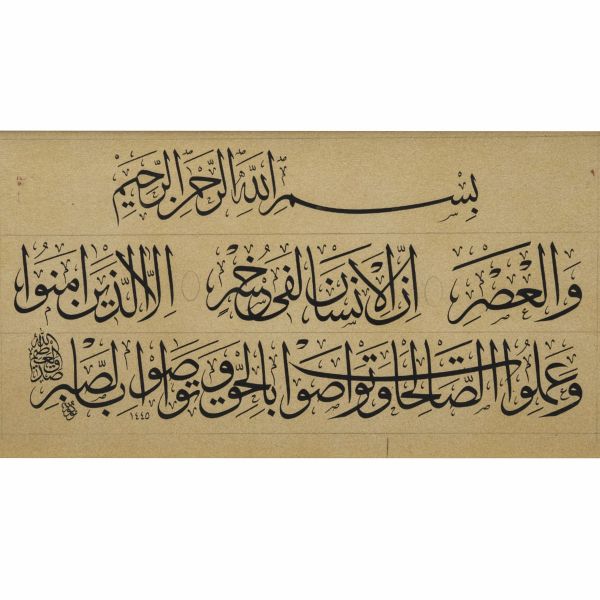 بِسْمِ اللّٰهِ الرَّحْمٰنِ الرَّحِيْمِ
وَالْعَصْرِ اِنَّ الْاِنْسَانَ لَفِى خُسْرٍ اِلَّا الَّذِيْنَ اٰمَنُوا
وَعَمِلُوا الصَّالِحَاتِ وَتَوَاصَوْا بِالْحَقِّ وَتَوَاصَوْا بِالصَّبْرِ
١٤٤٥